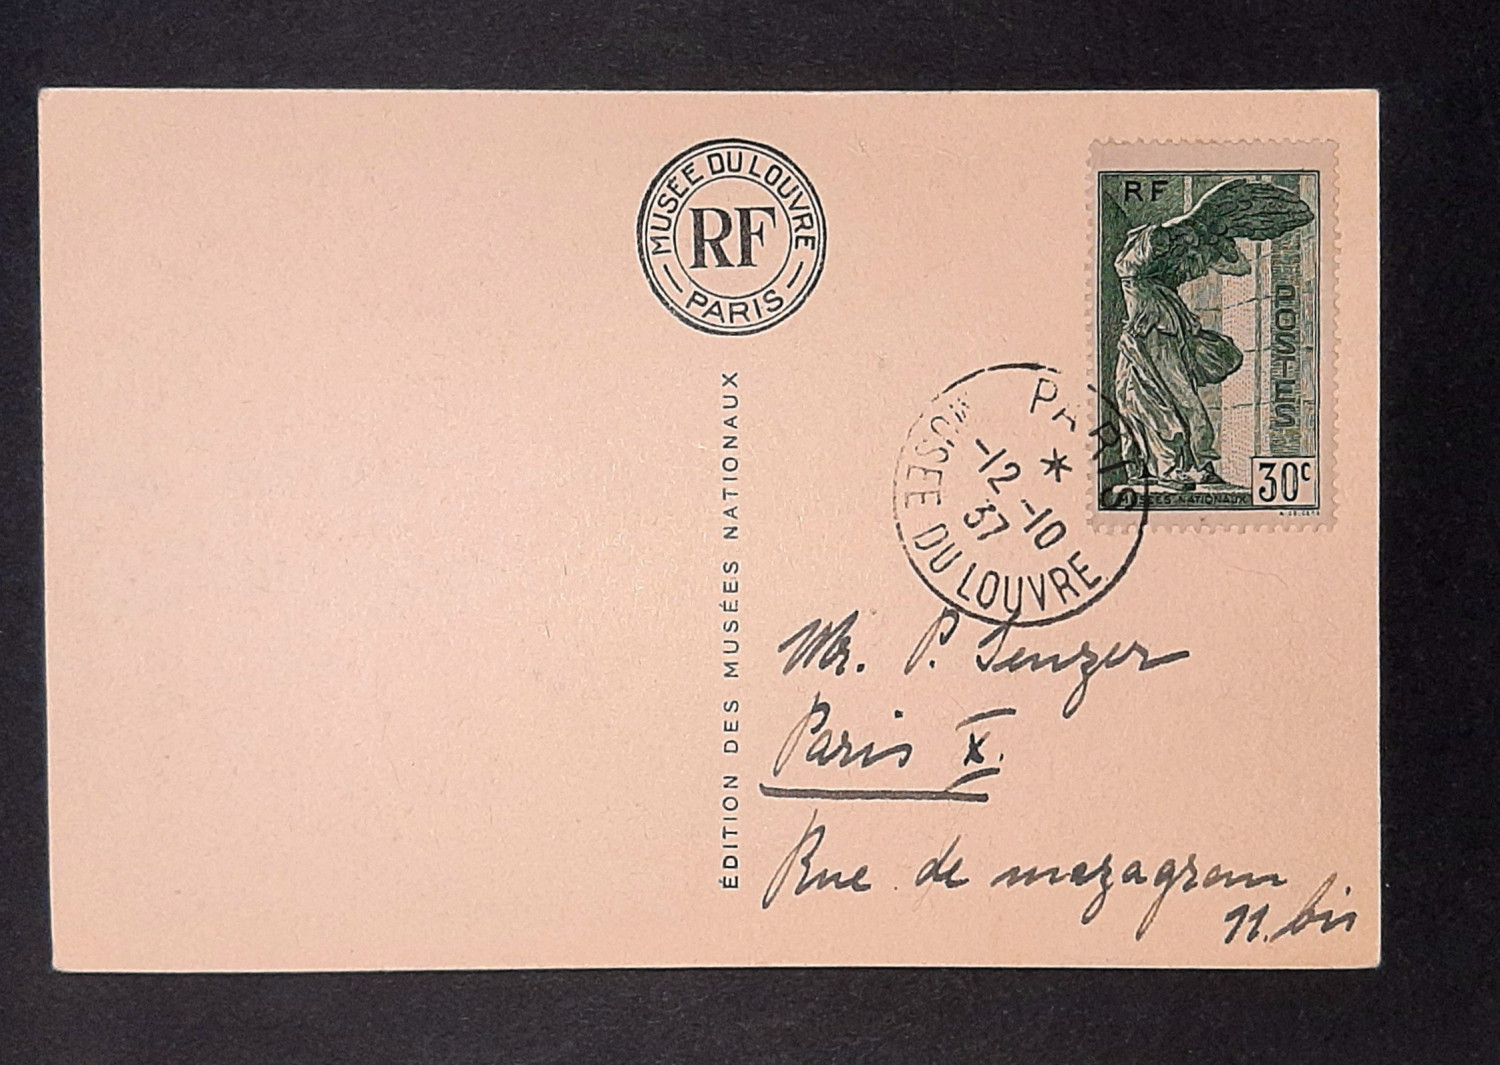 MUSÉE DU LOUVRE
RF
PARIS
ÉDITION DES MUSÉES NATIONAUX
RF
POSTES
MUSÉES NATIONAUX
30c
PARIS
*
-12-10
37
MUSEE DU LOUVRE
Mr. P. Senzer
Paris X.
Rue de mazagran
11. bis